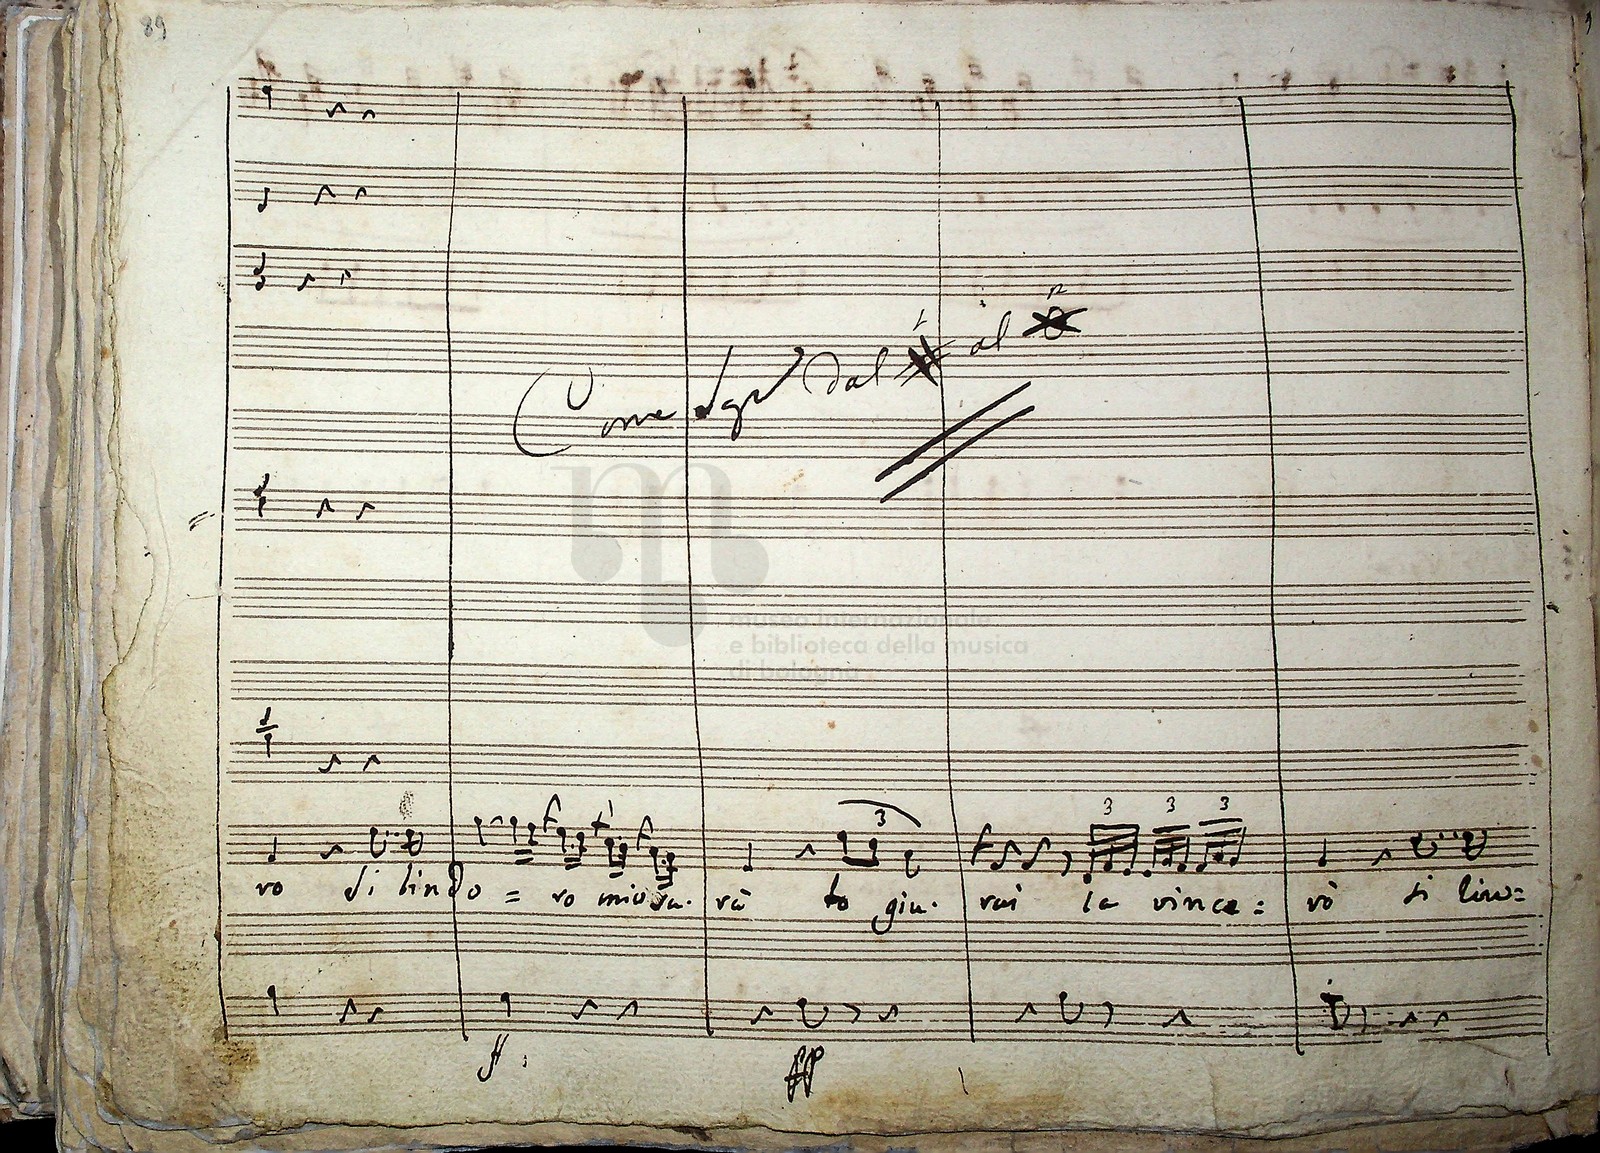 89
Come Sopra dal al
museo internazionale
e biblioteca della musica
di bologna
3 3 3 3
ro si lindo = ro mio sa. rà lo giu. rai la vince = rò si lin=
ff